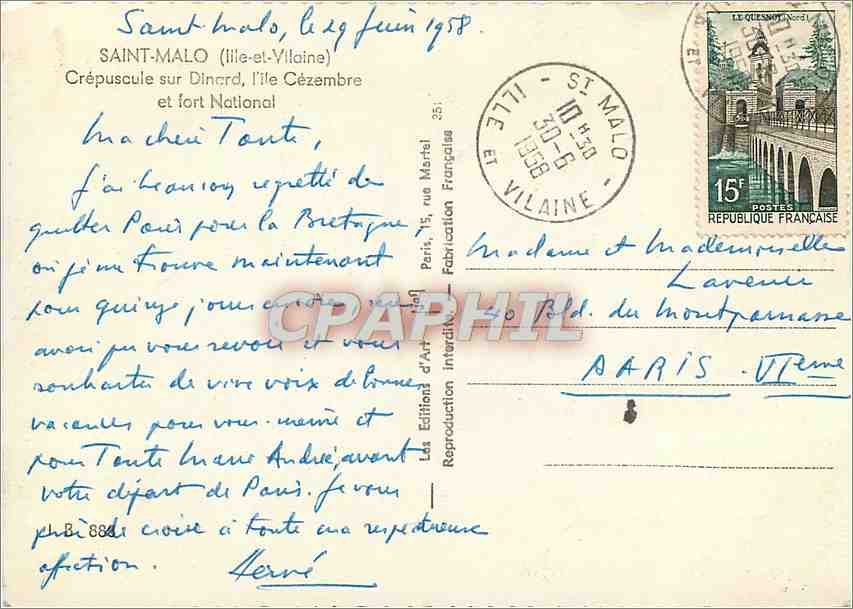 Saint-Malo, le 29 juin 1958.
SAINT-MALO (Ille-et-Vilaine)
Crépuscule sur Dinard, l'île Cézembre
et fort National
Ma chère Tante,
J'ai beaucoup regretté de
quitter Paris pour la Bretagne,
où je me trouve maintenant
pour quinze jours
avoir pu vous revoir et vous
souhaiter de vive voix de bonnes
vacances pour vous-même et
pour Tante Marie Andrée, avant
votre départ de Paris. Je vous
prie de croire à toute ma respectueuse
affection. Hervé
J. B. 888
Les Editions d'Art Paris, 15, rue Martel 251
Reproduction interdite. — Fabrication Française
ST MALO
10 H 30
30-6
1958
ILLE ET VILAINE
LE QUESNOY (Nord)
15F
POSTES
RÉPUBLIQUE FRANÇAISE
Madame et Mademoiselle
Lavenir
40 Bld. du Montparnasse
PARIS. VIeme
CPAPHIL